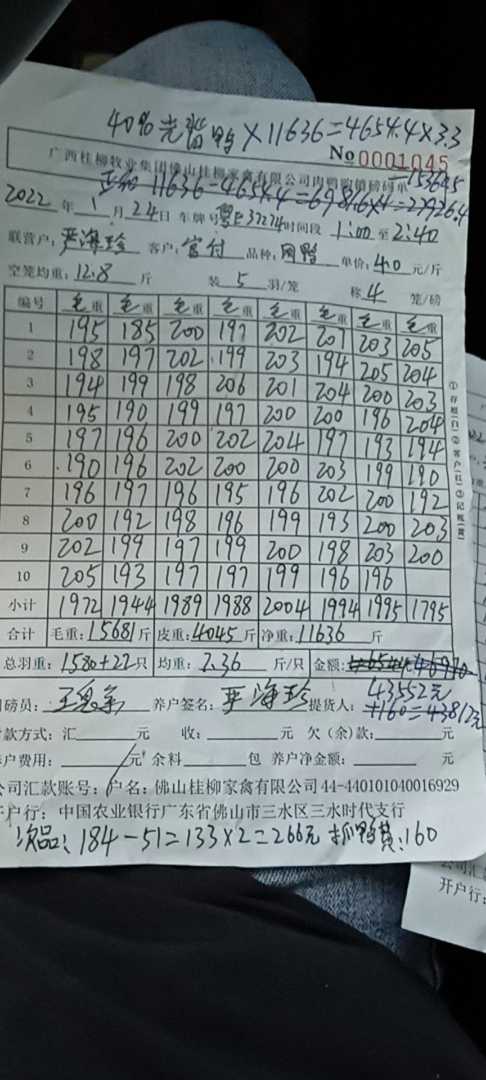 40% 光背鸭 × 11636 = 4654.4 × 3.3
广西桂柳牧业集团佛山桂柳家禽有限公司肉鸭购销磅码单
No 0001045
= 15364.5
正价 11636 - 4654.4 = 6981.6 × 4 = 27926.4
2022 年 1 月 24 日 车牌号 粤E37274 时间段 1:00 至 2:40
联营户: 严海珍 客户: 官付 品种: 肉鸭 单价: 4.0 元/斤
空笼均重: 12.8 斤 装 5 羽/笼 称 4 笼/磅
编号 毛重 毛重 毛重 毛重 毛重 毛重 毛重 毛重
1 195 185 200 197 202 207 203 205
2 198 197 202 199 203 194 205 204
3 194 199 198 206 201 204 200 203
4 195 190 199 197 200 200 196 204
5 197 196 200 202 204 197 193 194
6 190 196 202 200 200 203 199 190
7 196 197 196 195 196 202 200 192
8 200 192 198 196 199 193 200 203
9 202 199 197 199 200 198 203 200
10 205 193 197 197 199 196 196
小计 1972 1944 1989 1988 2004 1994 1995 1795
合计 毛重: 15681 斤 皮重: 4045 斤 净重: 11636 斤
总羽重: 1580+22 只 均重: 7.36 斤/只 金额:
43552元
磅员: 养户签名: 严海珍 提货人: +160=43812元
款方式: 汇 元 收: 元 欠(余)款: 元
户费用: 元 余料 包 养户净金额: 元
公司汇款账号: 户名: 佛山桂柳家禽有限公司 44-440101040016929
开户行: 中国农业银行广东省佛山市三水区三水时代支行
次品: 184-51=133×2=266元 抓鸭费: 160
①存根(白)②客户(红)③记账(黄)
开户行: